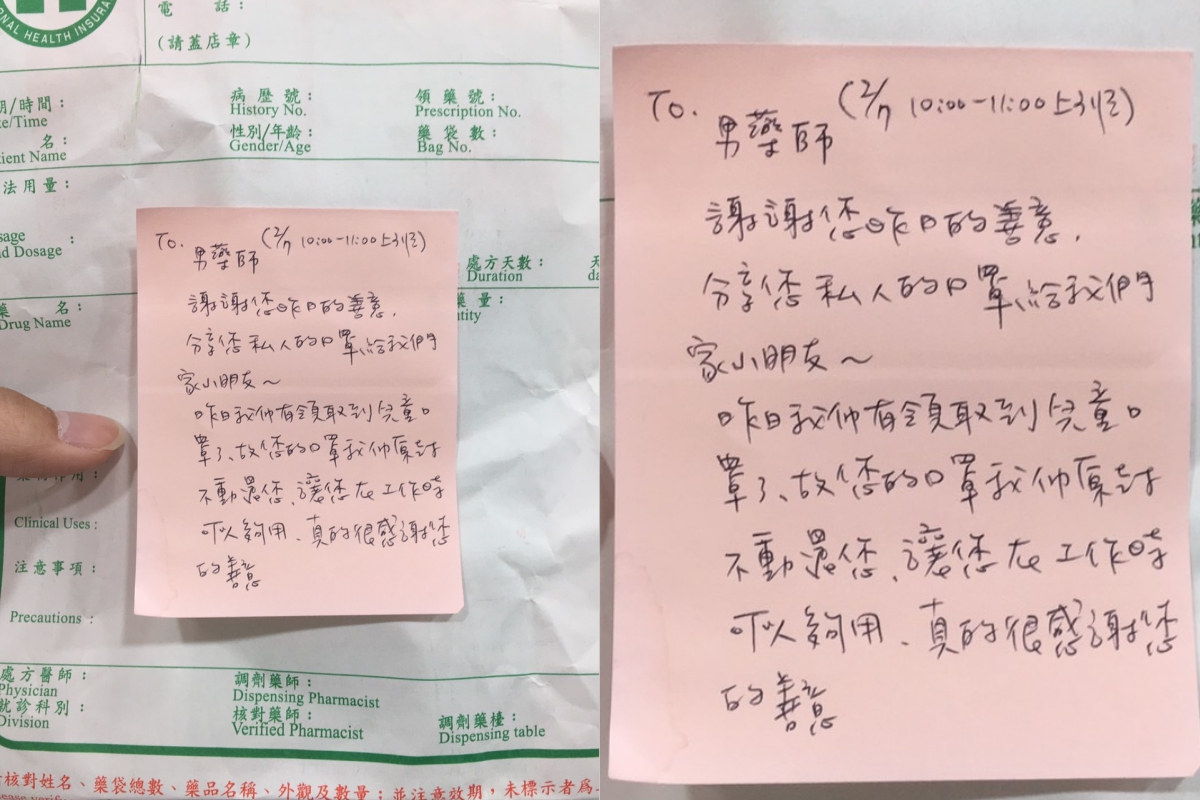 NAL HEALTH INSURA
電 話：
(請蓋店章)
期/時間：
te/Time
病歷號：
History No.
領藥號：
Prescription No.
名：
tient Name
性別/年齡：
Gender/Age
藥袋數：
Bag No.
法用量：
sage
nd Dosage
：
處方天數：
Duration
天
da
藥 名：
Drug Name
藥 量：
ntity
Clinical Uses :
注意事項：
Precautions :
處方醫師：
Physician
就診科別：
Division
調劑藥師：
Dispensing Pharmacist
核對藥師：
Verified Pharmacist
調劑藥檯：
Dispensing table
核對姓名、藥袋總數、藥品名稱、外觀及數量；並注意效期，未標示者為
To. 男藥師 (2/7 10:00-11:00上班)
謝謝您昨日的善意，
分享您私人的口罩、給我們
家小朋友～
昨日我们有領取到兒童口
罩了、故您的口罩我们原封
不動還您、讓您在工作時
可以夠用、真的很感謝您
的善意
To. 男藥師 (2/7 10:00-11:00上班)
謝謝您昨日的善意，
分享您私人的口罩、給我們
家小朋友～
昨日我们有領取到兒童口
罩了、故您的口罩我们原封
不動還您、讓您在工作時
可以夠用、真的很感謝您
的善意